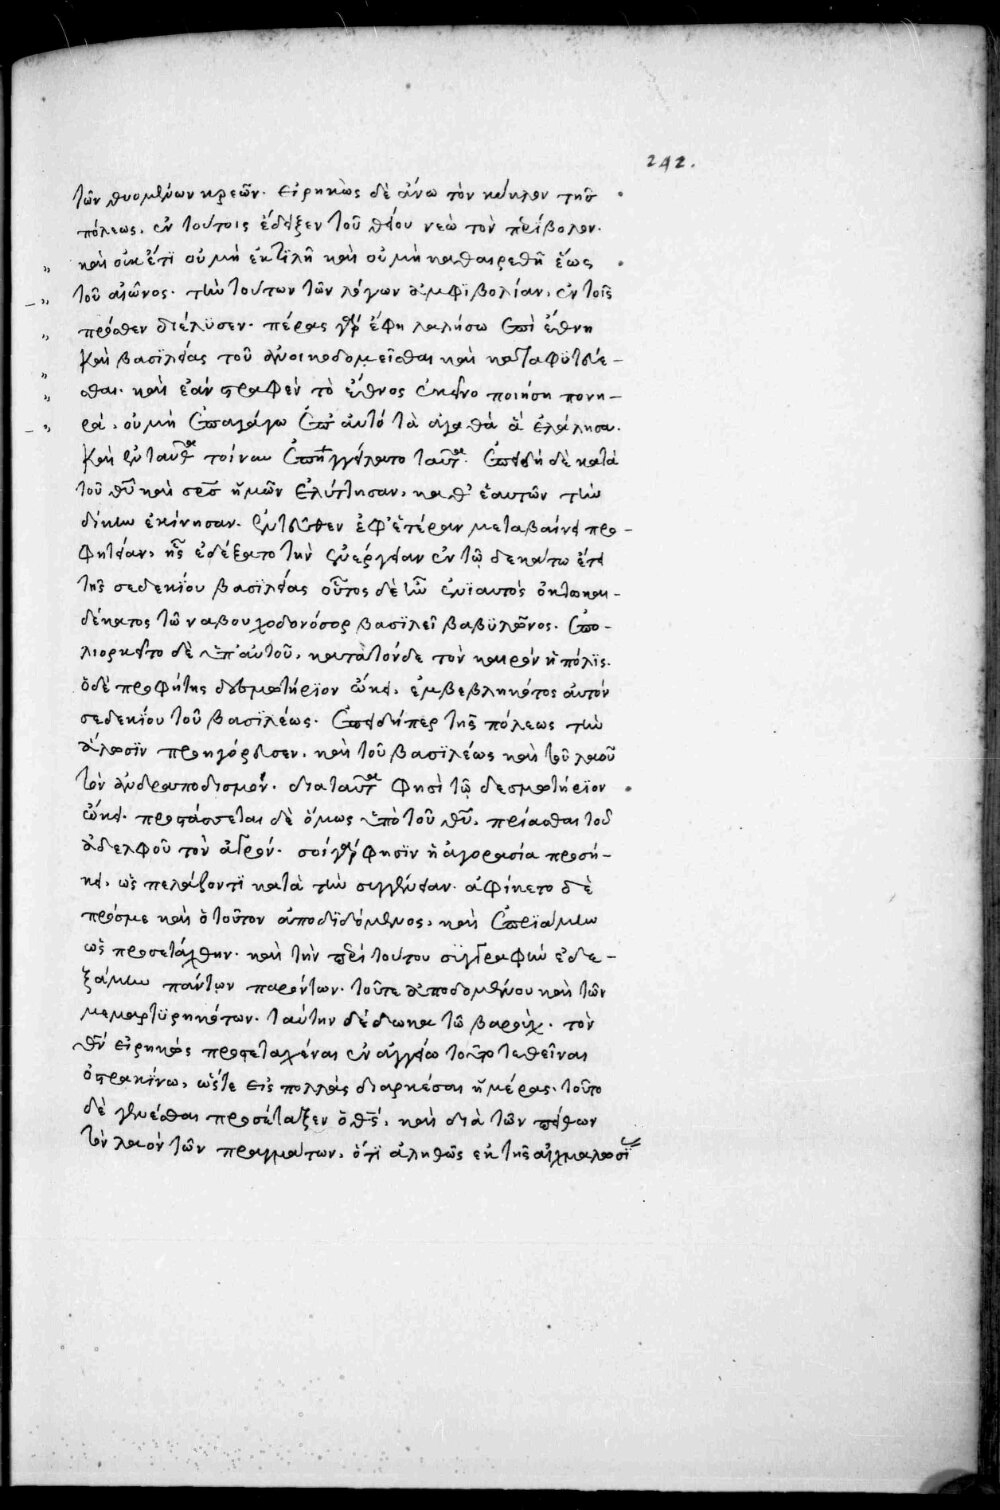 242.
τῶν θυομένων κρεῶν. εἰρηκὼς δὲ ἄνω τὸν κύκλον τῆς
πόλεως, ἐν τούτοις ἔδειξεν τοῦ θείου νεὼ τὸν περίβολον.
καὶ οὐκ ἔτι οὐ μὴ ἐκτιλῆ καὶ οὐ μὴ καθαιρεθῆ ἕως
τοῦ αἰῶνος. τὴν τούτων τῶν λόγων ἀμφιβολίαν, ἐν τοῖς
πρόσθεν διέλυσεν. πέρας γὰρ ἔφη λαλήσω ἐπὶ ἔθνη
καὶ βασιλείας τοῦ ἀνοικοδομεῖσθαι καὶ καταφυτεύε-
σθαι. καὶ ἐὰν στραφὲν τὸ ἔθνος ἐκεῖνο ποιήση πονη-
ρά, οὐ μὴ ἐπαγάγω ἐπ' αὐτὸ τὰ ἀγαθὰ ἃ ἐλάλησα.
καὶ ἐνταῦθα τοίνυν ἐπηγγείλατο ταῦτα. ἐπειδὴ δὲ κατὰ
τοῦ θυ καὶ σρς ἡμῶν ἐλύττησαν, καθ' ἑαυτῶν τὴν
δίκην ἐκίνησαν. ἐντεῦθεν ἐφ' ἑτέραν μεταβαίνει προ-
φητείαν, ἧς ἐδέξατο τὴν ἐνέργειαν ἐν τῷ δεκάτω ἔτει
τῆς σεδεκίου βασιλείας οὗτος δὲ ἦν ἐνιαυτὸς ὀκτωκαι-
δέκατος τῶ ναβουχοδονόσορ βασιλεῖ βαβυλῶνος. ἐπο-
λιορκεῖτο δὲ ὑπ' αὐτοῦ, κατὰ τόνδε τὸν καιρὸν ἡ πόλις.
ὁ δὲ προφήτης δεσμωτήριον ᾤκει, ἐμβεβληκότος αὐτὸν
σεδεκίου τοῦ βασιλέως. ἐπειδήπερ τῆς πόλεως τὴν
ἅλωσιν προηγόρευσεν, καὶ τοῦ βασιλέως καὶ τοῦ λαοῦ
τὸν ἀνδραποδισμόν. διὰ ταῦτα φησὶ τῷ δεσμωτήριον
ᾤκει. προστάσσεται δὲ ὅμως ὑπὸ τοῦ θυ, πρίασθαι τοῦ
ἀδελφοῦ τὸν ἀγρόν. σοὶ γάρ φησιν ἡ ἀγορασία προσή-
κει, ὡς πελάζοντι κατὰ τὴν συγγένειαν. ἀφίκετο δὲ
πρός με καὶ ὁ τοῦτον ἀποδιδόμενος, καὶ ἐπριάμην
ὡς προσετάχθην. καὶ τὴν περὶ τούτου συγγραφὴν ἐδε-
ξάμην πάντων παρόντων. τοῦτε ἀποδομένου καὶ τῶν
μεμαρτυρηκότων. ταύτην δέδωκα τῶ βαρούχ. τὸν
θν εἰρηκὼς προστεταχέναι ἐν ἀγγείω τοῦτο τεθεῖναι
ὀστρακίνω, ὥστε εἰς πολλὰς διαρκέσαι ἡμέρας. τοῦτο
δὲ γενέσθαι προσέταξεν ὁ θς, καὶ διὰ τῶν πείθων
τὸν λαὸν τῶν πραγμάτων, ὅτι ἀληθῶς ἐκ τῆς αἰχμαλωσί